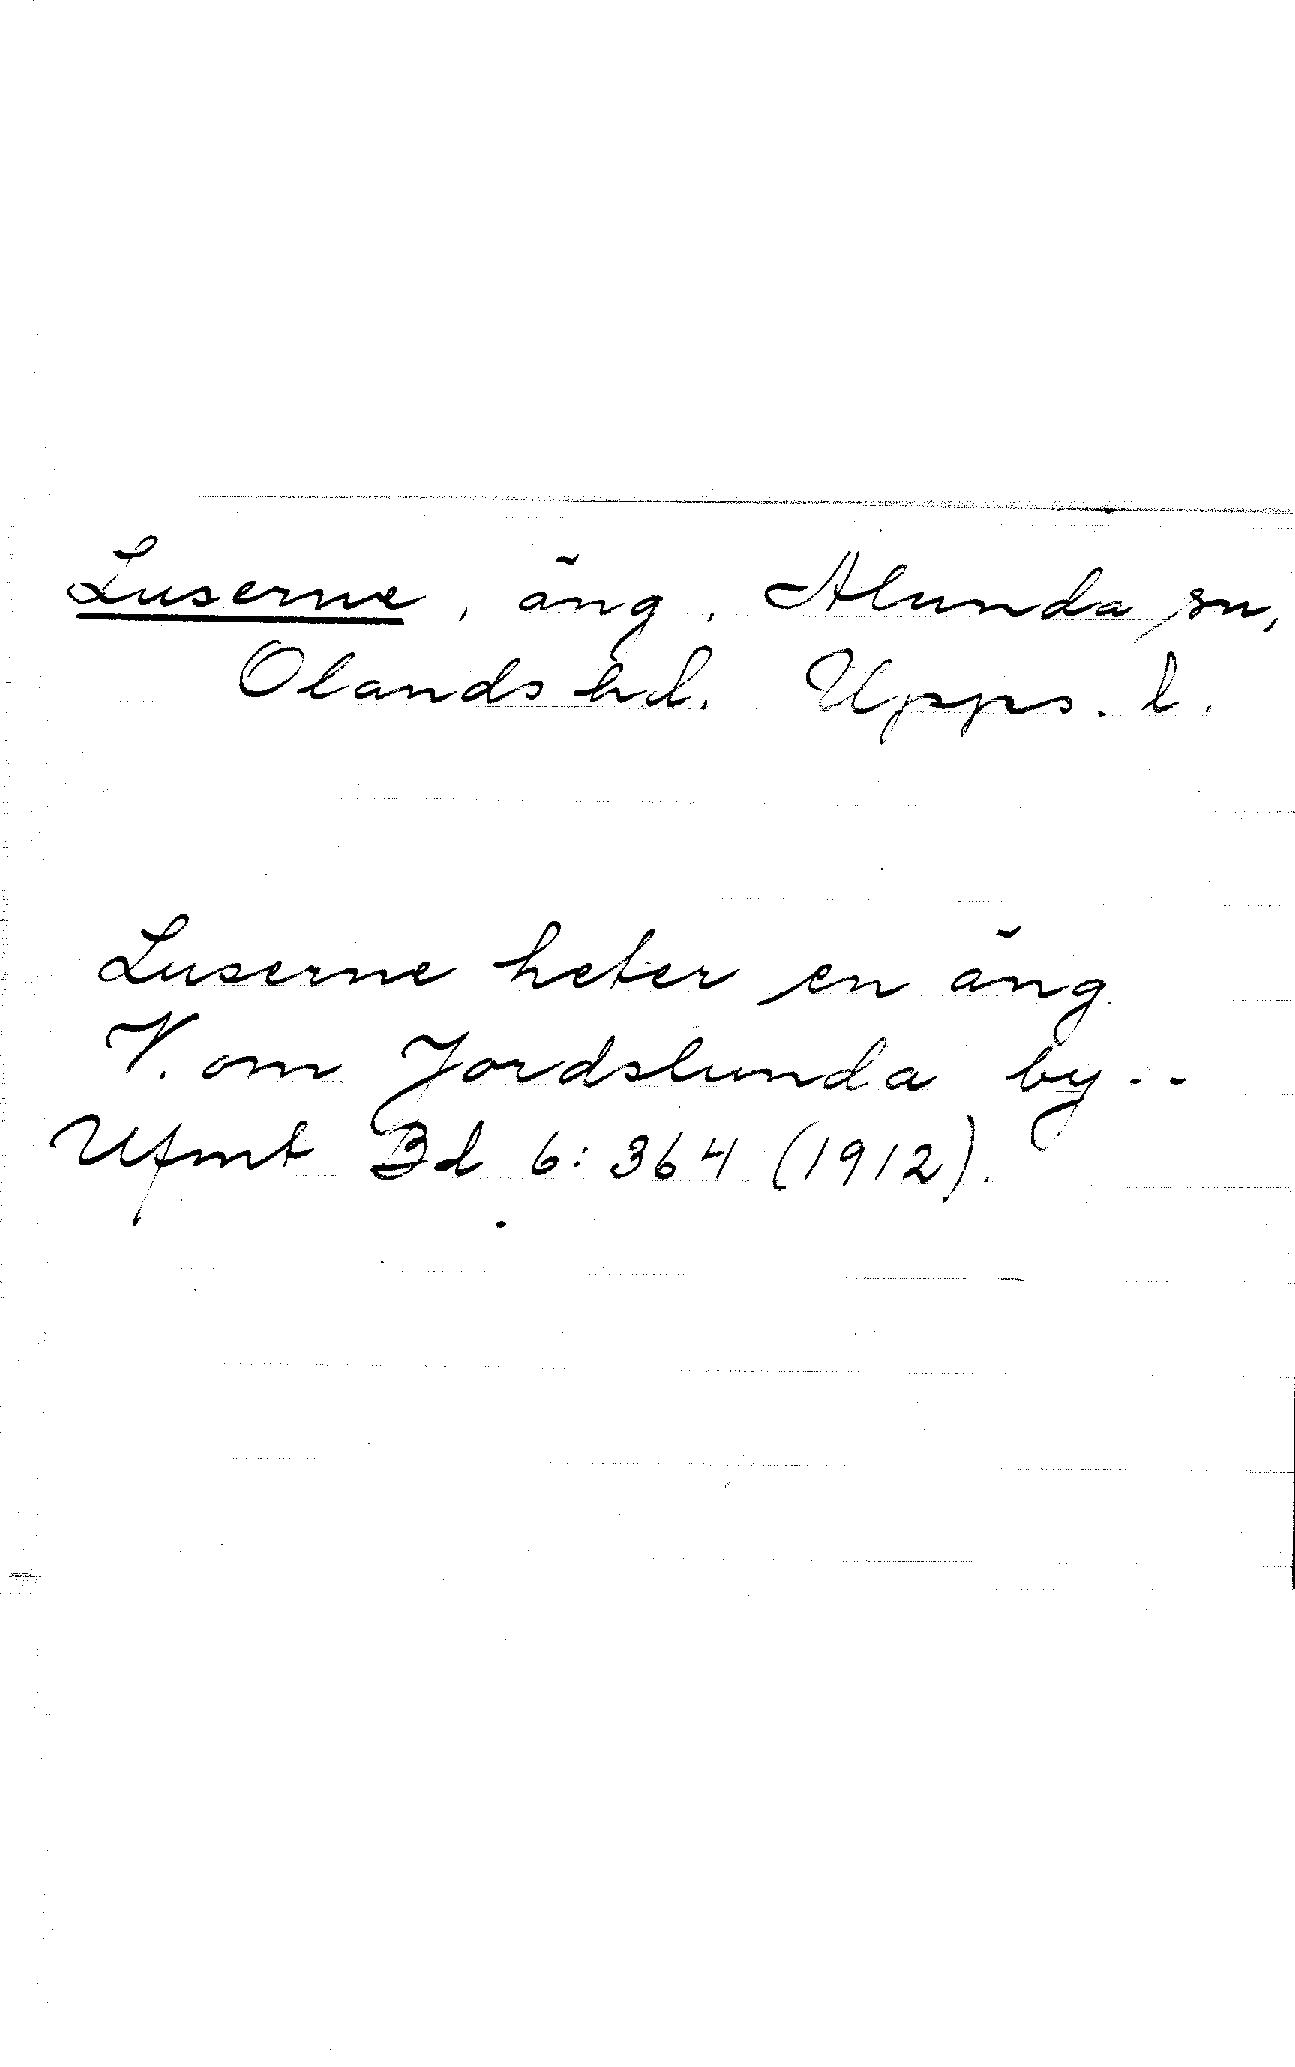 Luserne, äng, Alunda sn,
Olands hd. Upps. l.
Luserne heter en äng
V. om Jordslunda by..
Ufmt Bd 6: 364 (1912).